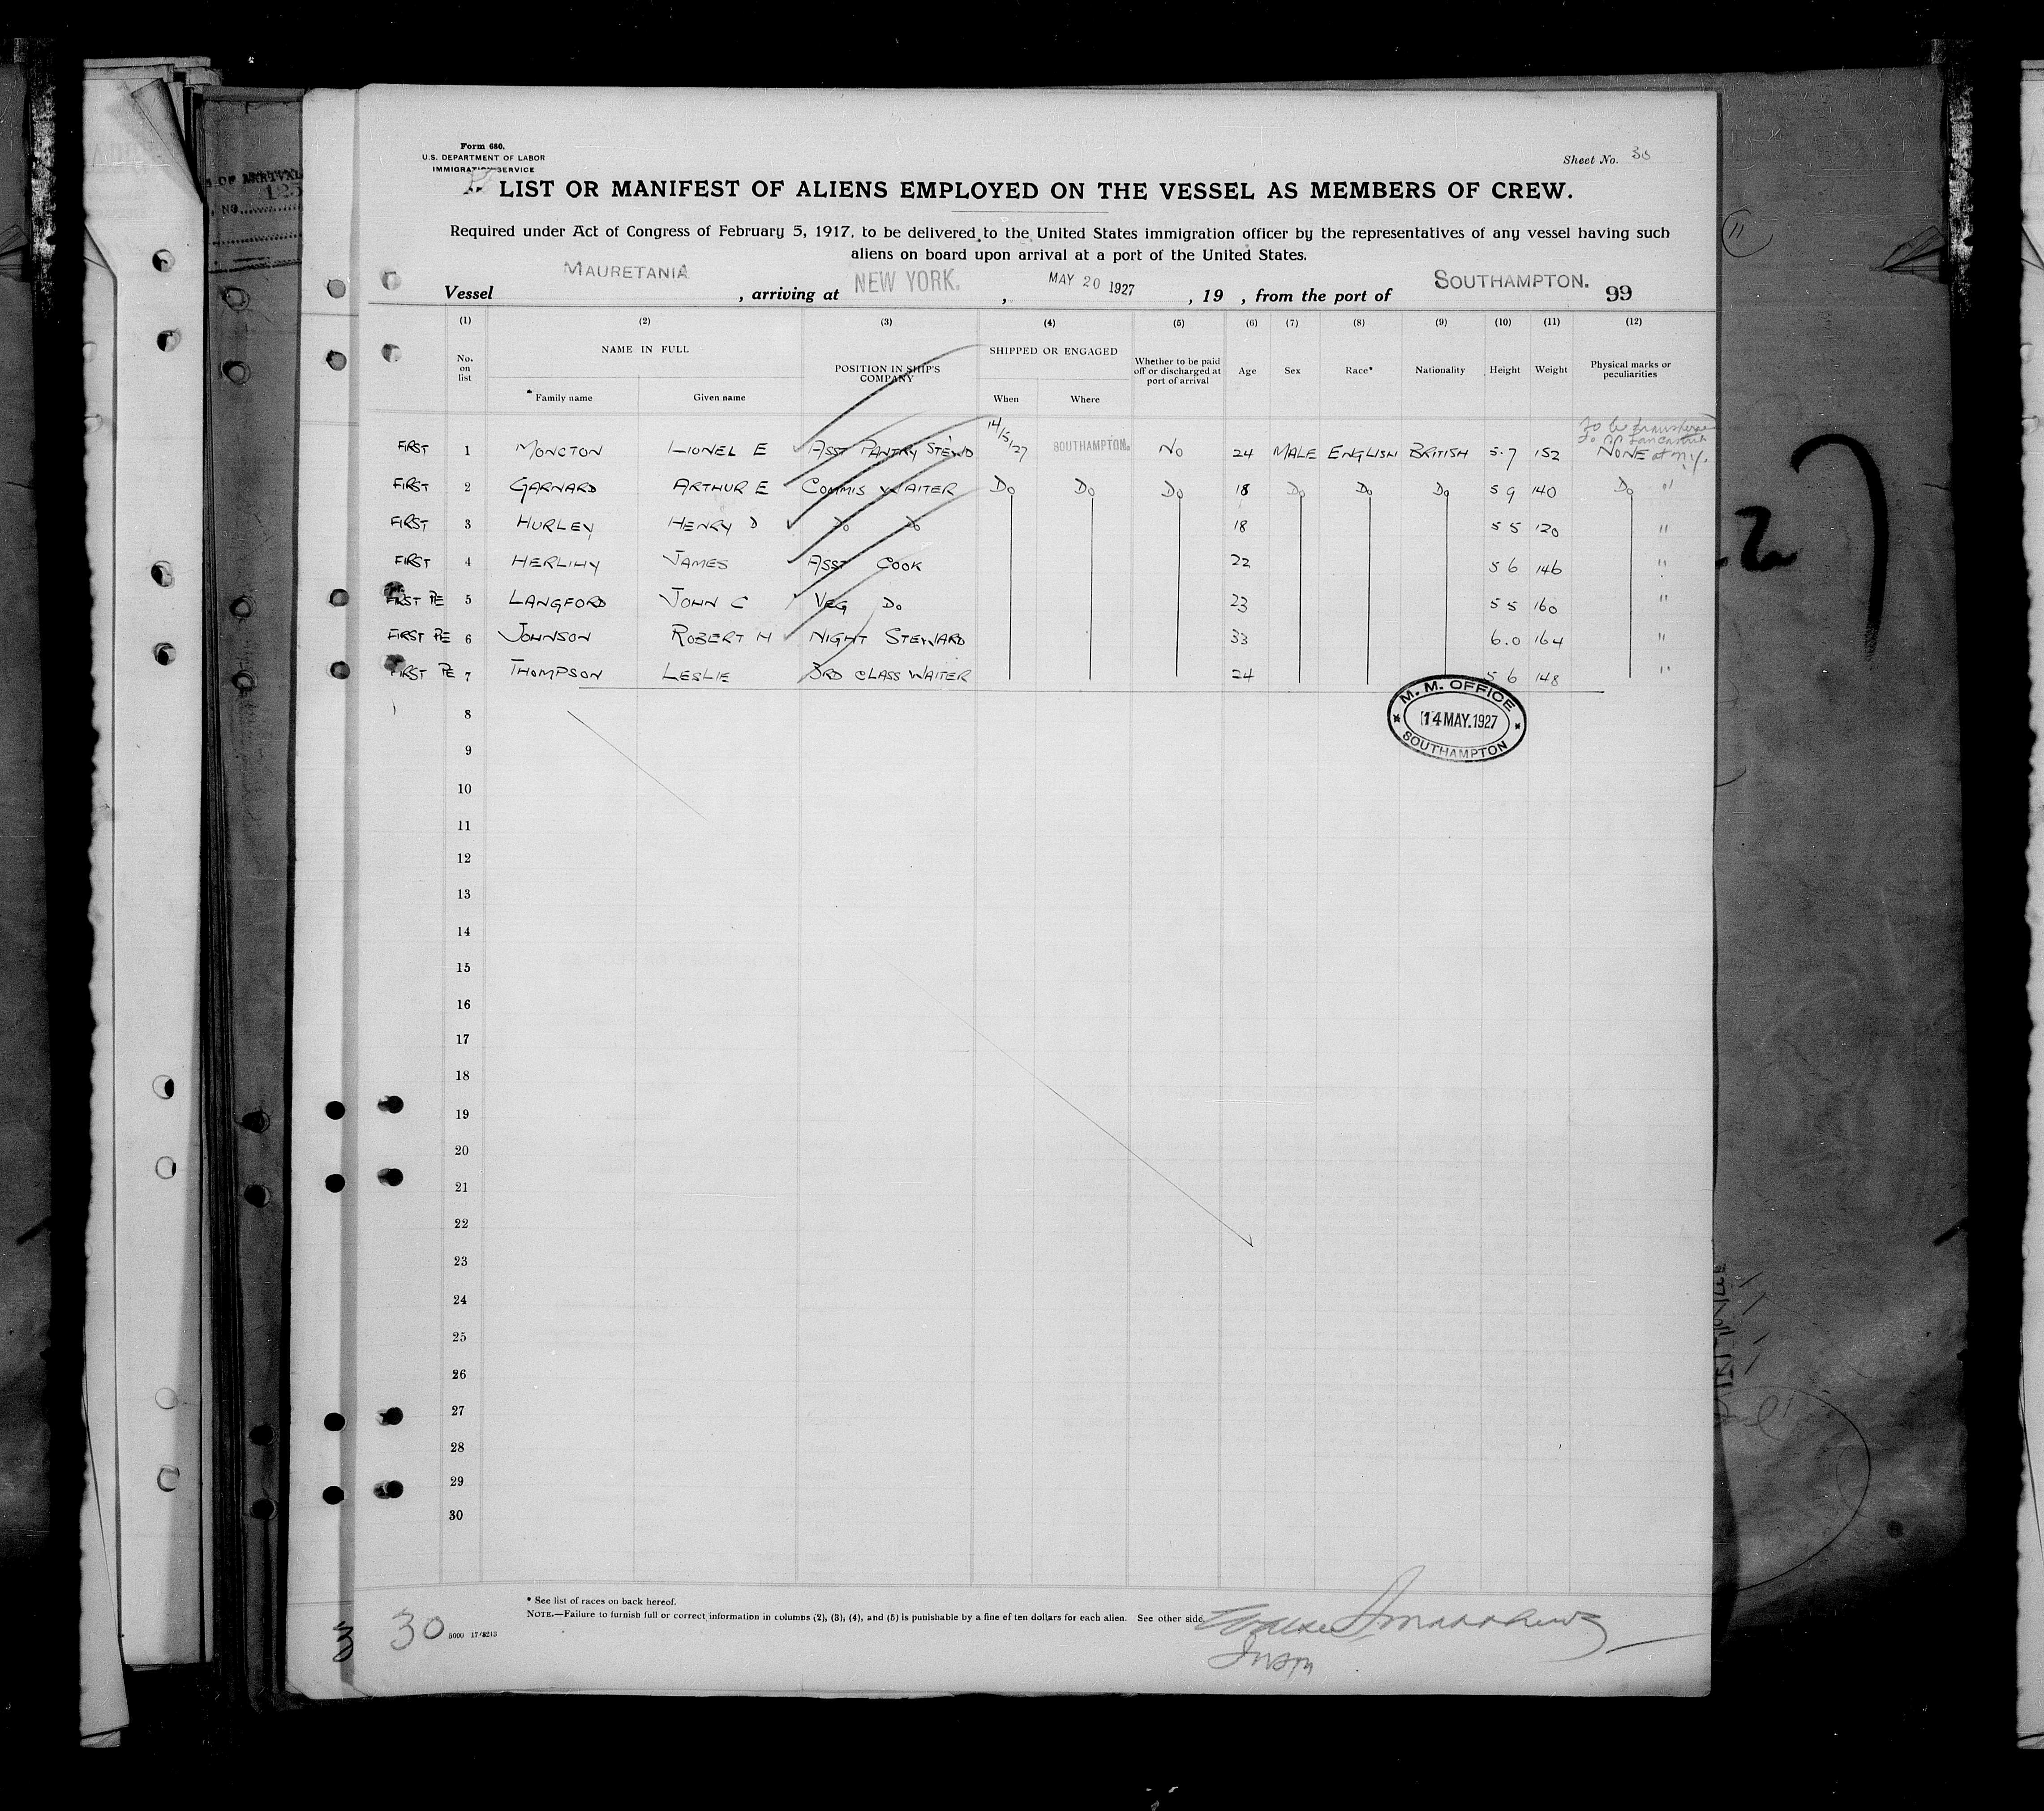 Form 680.
U.S. DEPARTMENT OF LABOR
IMMIGRATION SERVICE
Sheet No. 30
LIST OR MANIFEST OF ALIENS EMPLOYED ON THE VESSEL AS MEMBERS OF CREW.
Required under Act of Congress of February 5, 1917, to be delivered to the United States immigration officer by the representatives of any vessel having such
aliens on board upon arrival at a port of the United States.
Vessel MAURETANIA, arriving at NEW YORK., MAY 20 1927, 19 , from the port of SOUTHAMPTON. 99
(1) (2) (3) (4) (5) (6) (7) (8) (9) (10) (11) (12)
No. on list NAME IN FULL POSITION IN SHIP'S COMPANY SHIPPED OR ENGAGED Whether to be paid off or discharged at port of arrival Age Sex Race* Nationality Height Weight Physical marks or peculiarities
Family name Given name When Where
To be
to
FIRST 1 MONCTON LIONEL E ASST PANTRY STEWD 14/5/27 SOUTHAMPTON. NO 24 MALE ENGLISH BRITISH 5.7 152 NONE at N.Y.
FIRST 2 GARNARD ARTHUR E COMMIS WAITER Do Do Do 18 Do Do Do 5 9 140 Do "
FIRST 3 HURLEY HENRY D Do Do 18 5 5 120 "
FIRST 4 HERLIHY JAMES ASST COOK 22 5 6 146 "
FIRST PE 5 LANGFORD JOHN C VEG Do 23 5 5 160 "
FIRST PE 6 JOHNSON ROBERT H NIGHT STEWARD 33 6.0 164 "
FIRST PE 7 THOMPSON LESLIE 3RD CLASS WAITER 24 5 6 148 "
M. M. OFFICE
14 MAY. 1927
SOUTHAMPTON
8
9
10
11
12
13
14
15
16
17
18
19
20
21
22
23
24
25
26
27
28
29
30
* See list of races on back hereof.
NOTE.—Failure to furnish full or correct information in columns (2), (3), (4), and (5) is punishable by a fine of ten dollars for each alien. See other side.
30 5000 17/8213